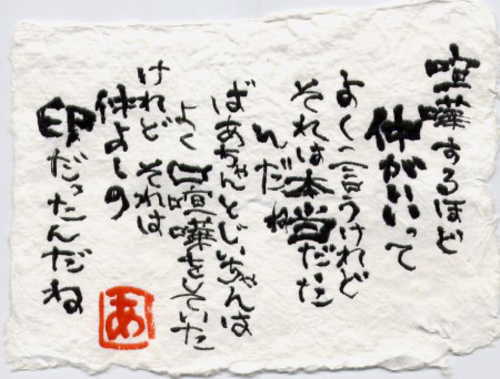 喧嘩するほど
仲がいいって
よく言うけれど
それは本当だった
んだね
ばあちゃんとじいちゃんは
よく口喧嘩をしていた
けれど それは
仲よしの
印だったんだね
あ